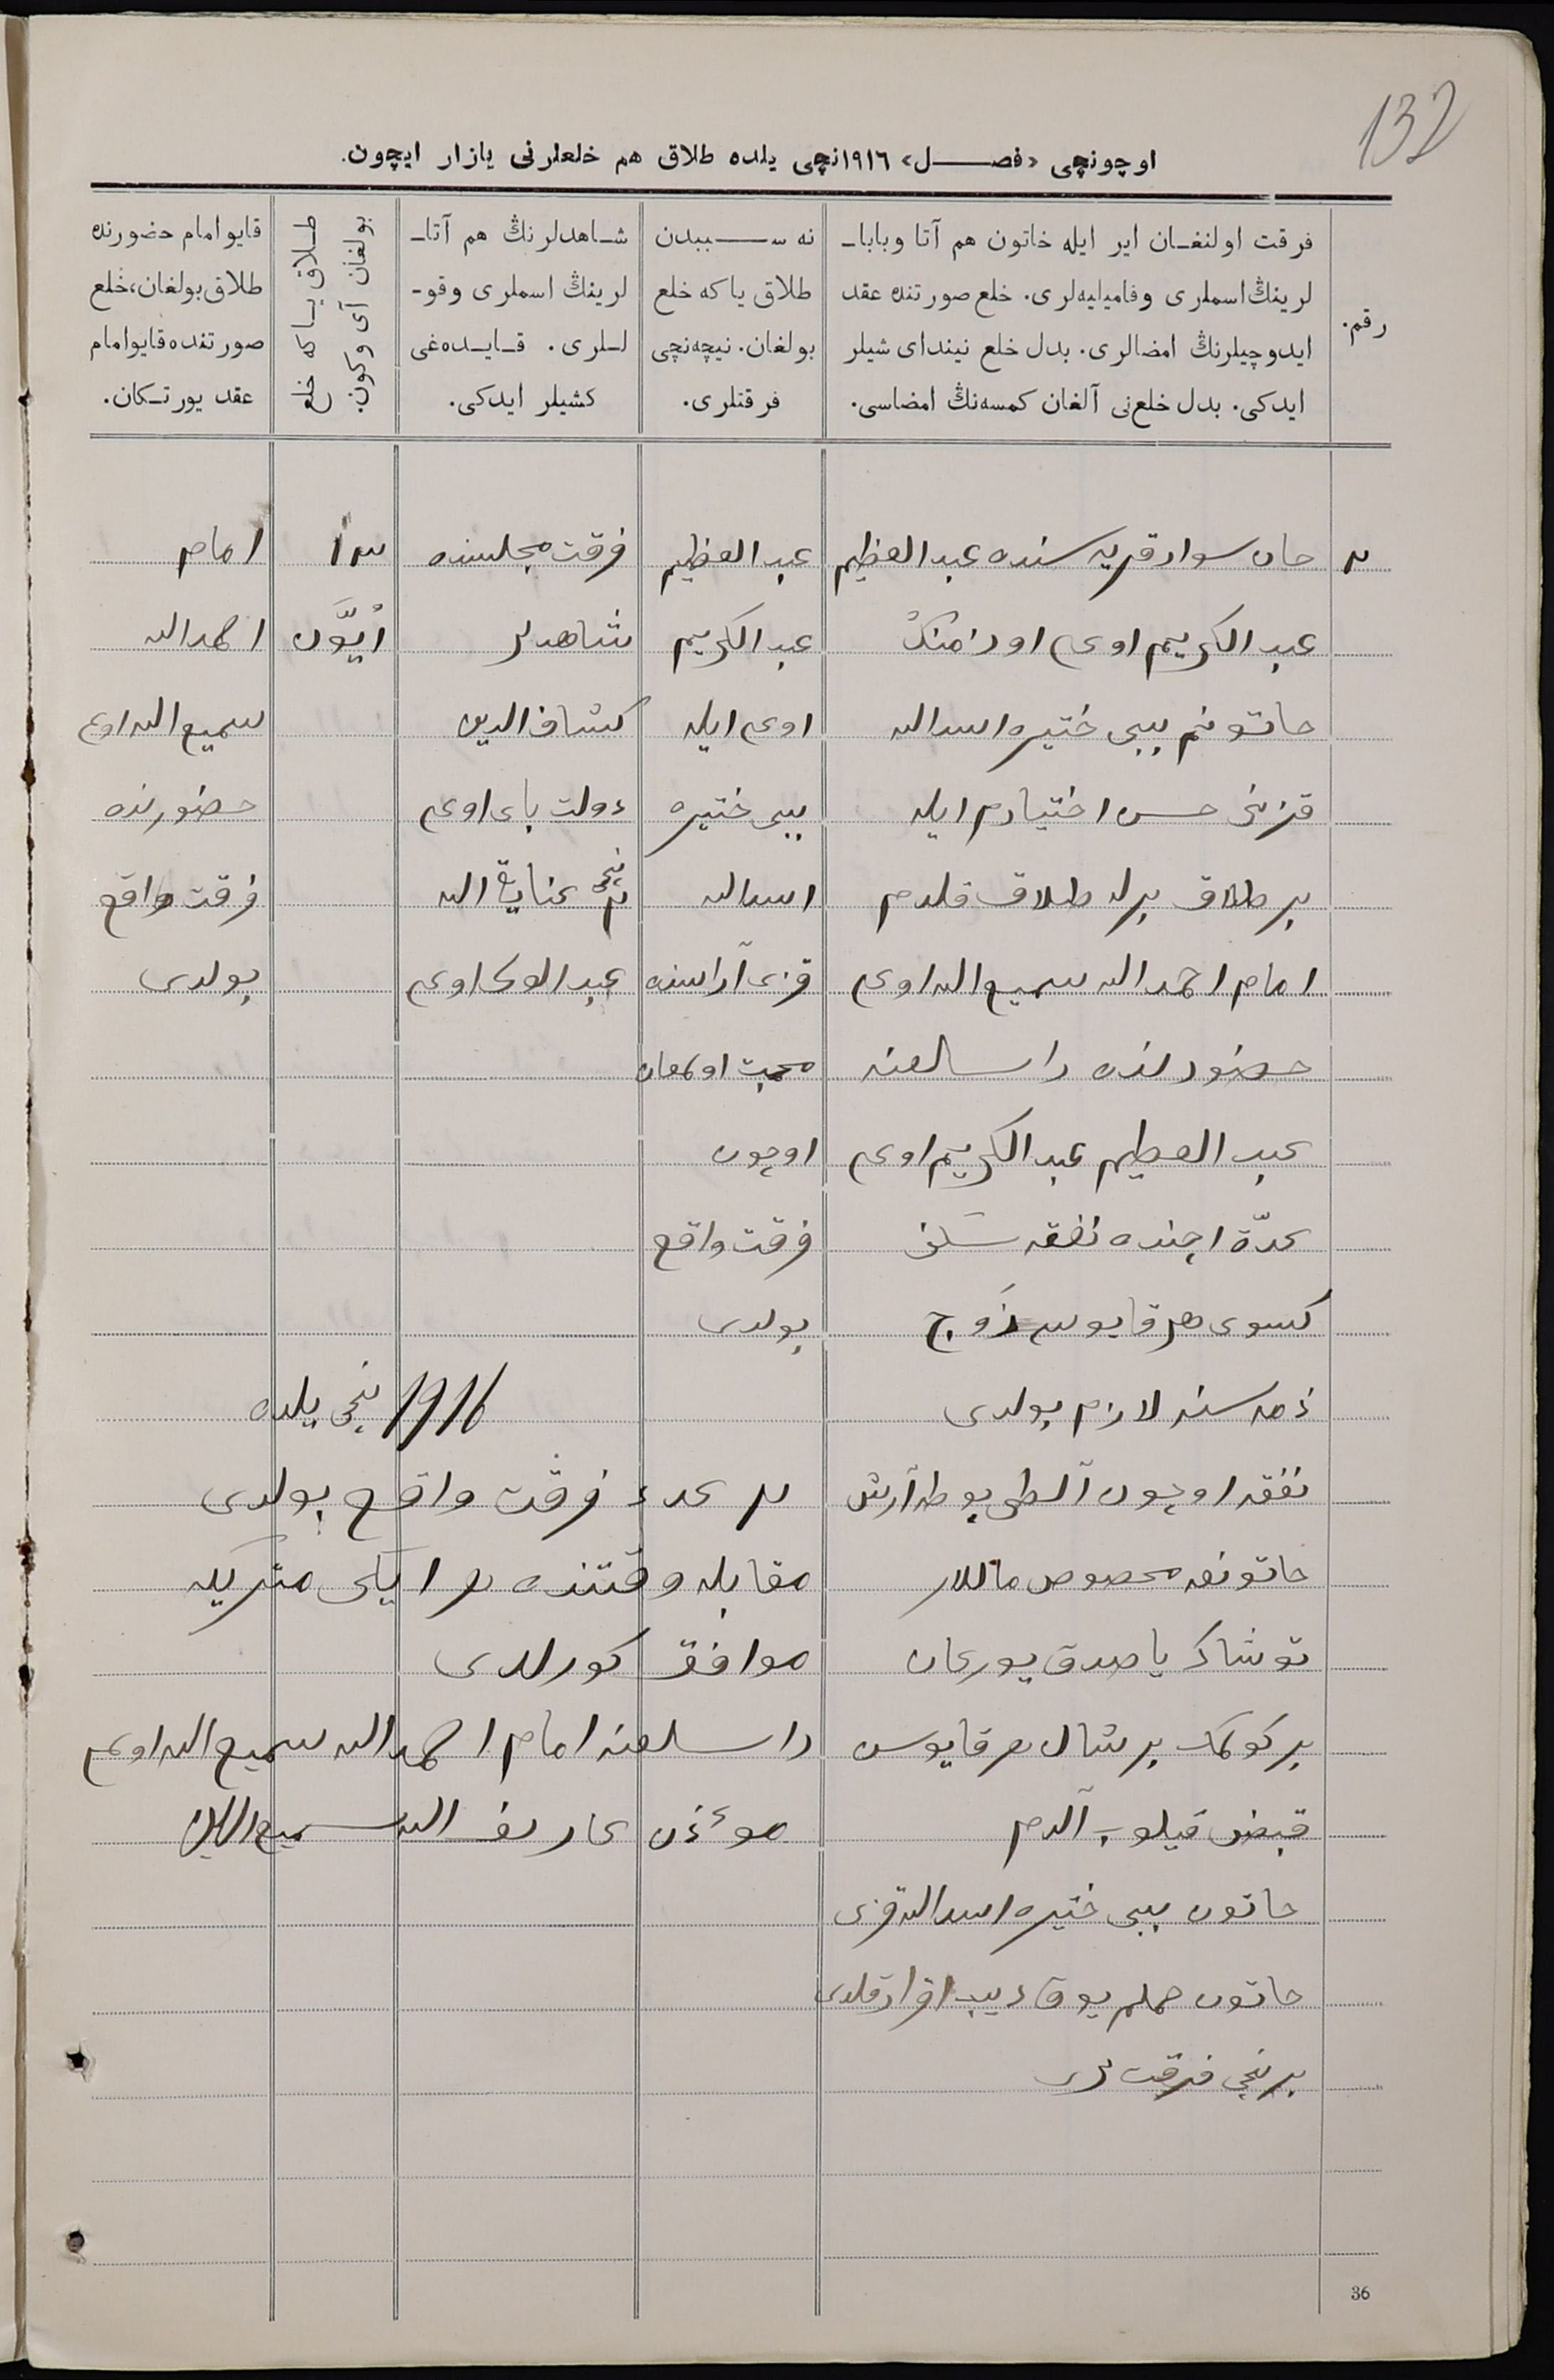 132
اوچونچی «فصل» ١٩١٦نچی یلده طلاق هم خلعلرنی یازار ایچون.
رقم.
فرقت اولنغان ایر ایله خاتون هم آتا و بابا-
لرینڭ اسملری و فامیلیه‌لری. خلع صورتنده عقد
ایدوچیلرنڭ امضالری. بدل خلع نیندای شیلر
ایدکی. بدل خلع‌نی آلغان کمسه‌نڭ امضاسی.
نه سببدن
طلاق یاکه خلع
بولغان. نیچه‌نچی
فرقتلری.
شاهدلرنڭ هم آتا-
لرینڭ اسملری و قو-
لـلری. قایده‌غی
کشیلر ایدکی.
طلاق یاکه خلع
بولغان آی و کون.
قایو امام حضورنده
طلاق بولغان، خلع
صورتنده قایو امام
عقد یورتکان.
٢
سوار قریه سنده عبد العظیم
عبد الکریم اوغلی اوزمنڭ
خاتونم بیبی ختیره اسد الله
قزنی حسن اختیارم ایله
بر طلاق برله طلاق قلدم
امام احمد الله سمیع الله اوغلی
حضورنده
عبد العظیم عبد الکریم اوغلی
عدّة اچنده نفقه سکنی
کسوی هر قایوسی زَوج
ذمه سنه لازم بولدی
نفقه اوچون
خاتونغه مخصوص ماللار
توشاك یاصدق یورغان
بر کولمك بر شال هر قایوسن
قبض قیلوب آلدم
خاتون بیبی ختیره اسد الله قزی
خاتون حملم یوق دیب اقرار قلدی
برنچی فرقت
عبد العظیم
عبد الکریم
اوغلی ایله
بیبی ختیره
اسد الله
قزی آراسنده
محبت اولمغان
اوچون
فرقت واقع
بولدی
فرقت مجلسنده
شاهدلر
کشاف الدین
دولت بای اوغلی
٢نچی عنایة الله
عبد الولی اوغلی
١٣
اُیّون
امام
احمد الله
سمیع الله اوغلی
حضورنده
فرقت واقع
بولدی
1916 نچی یلده
٢ عدد فرقت واقع بولدی
مقابله وقتنده هر ایکی متریکه
موافق کورلدی
امام احمد الله سمیع الله اوغلی
موءذن عارف الله سمیع الله
36